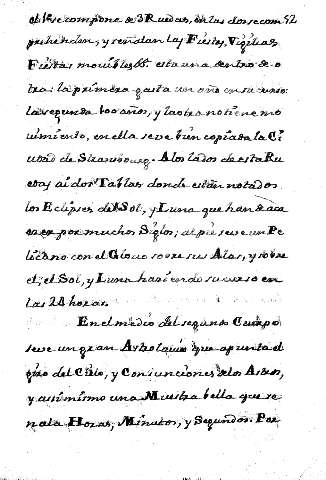 el 1º se compone de 3 Ruedas, de las dos se com 52
prehenden, y señalan las Fiestas, Vigilias
Fiestas movibles &. esta una dentro de o
tra: la primera gasta un año en su curso:
la segunda 100 años, y la otra no tiene mo
vimiento, en ella se ve bien copiada la Ci
udad de Strasbourg. A los lados de esta Ru
edas ai dos Tablas donde estan notados
los Eclipses del Sol, y Luna que han de aca
ecer por muchos Siglos; al pie se ve un Pe
licano con el Globo sobre sus Alas, y sobre
el, el Sol, y Luna haciendo su curso en
las 24 horas.
En el medio del segundo Cuerpo
se ve un gran Astrolavio que apunta el
giro del Cielo, y Conjunciones de los Astros,
y asi mismo una Muestra bella que se
ñala Horas, Minutos, y Segundos. Por